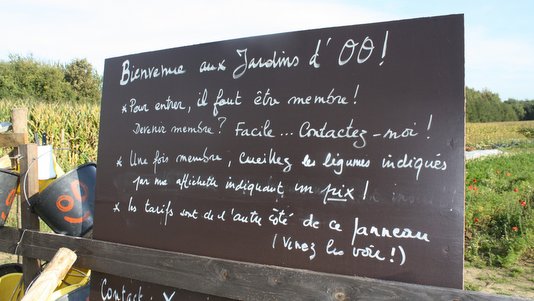 Bienvenue aux Jardins d'OO!
* Pour entrer, il faut être membre!
Devenir membre? Facile... Contactez-moi!
* Une fois membre, cueillez les légumes indiqués
par une affichette indiquant un prix!
* les tarifs sont de l'autre côté de ce panneau
(Venez les voir!)
Contact: